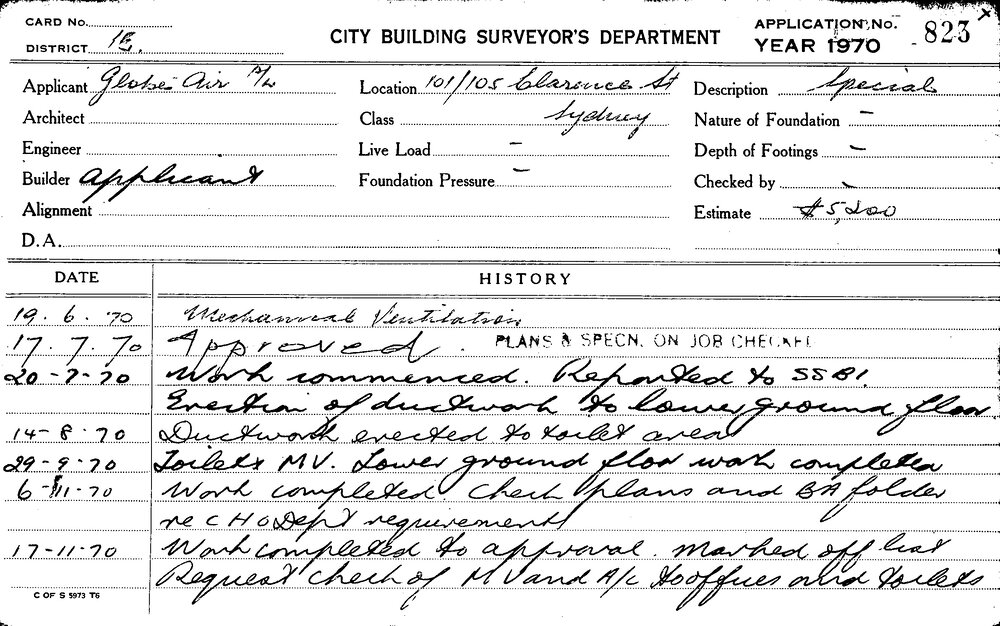 CARD No.
DISTRICT 1E.
CITY BUILDING SURVEYOR'S DEPARTMENT
APPLICATION No. 823
YEAR 1970
Applicant Globe Air P/L
Location 101/105 Clarence St
Description Special
Architect
Class Sydney
Nature of Foundation –
Engineer
Live Load –
Depth of Footings –
Builder Applicant
Foundation Pressure –
Checked by –
Alignment
Estimate $5,200
D.A.
DATE HISTORY
19. 6. 70 Mechanical Ventilation
17. 7. 70 Approved. PLANS & SPECN. ON JOB CHECKED
20-7-70 Work commenced. Reported to SSBI.
Erection of ductwork to lower ground floor
14-8-70 Ductwork erected to toilet area
29-9-70 Toilets MV. Lower ground floor work completed
6-11-70 Work completed Check plans and BA folder
re C H O Dept requirements
17-11-70 Work completed to approval. Marked off list
Request check of MV and A/C to offices and toilets
C OF S 5973 T6